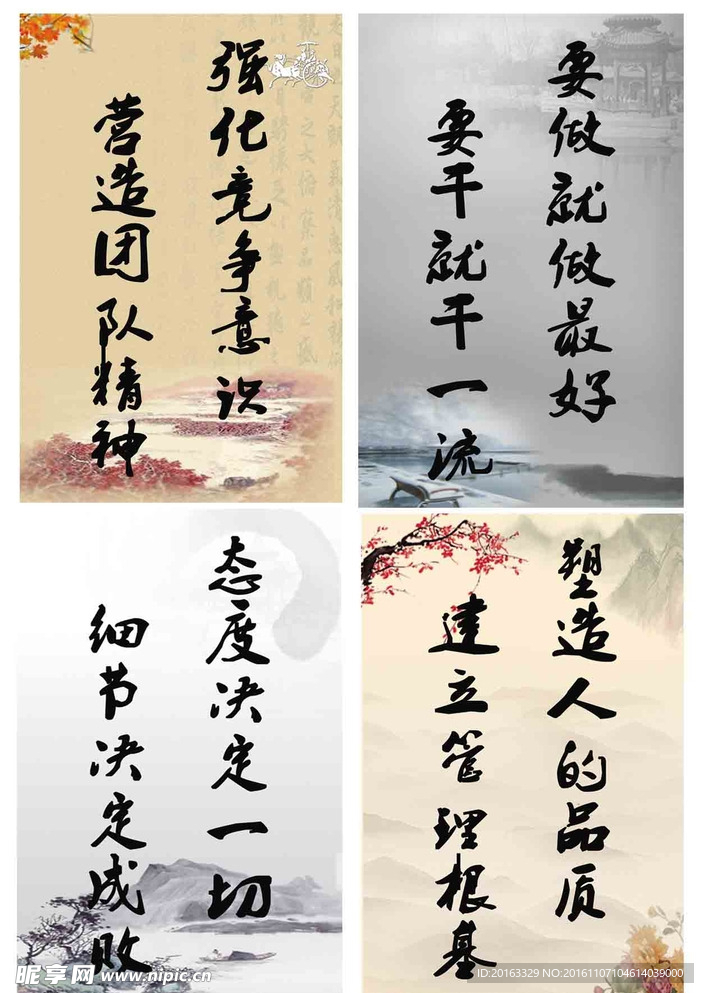 强化竞争意识
营造团队精神
要做就做最好
要干就干一流
态度决定一切
细节决定成败
塑造人的品质
建立管理根基
昵享网 www.nipic.cn
ID:20163329 NO:20161107104614039000